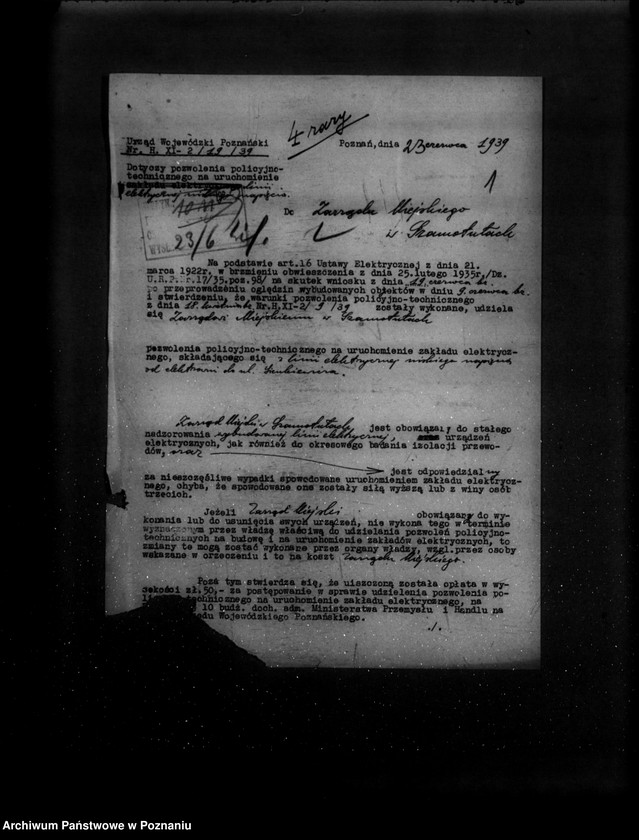 4 razy
Urząd Wojewódzki Poznański
Nr. H. XI- 2/19/39
Poznań, dnia 23 czerwca 1939
Dotyczy pozwolenia policyjno-
technicznego na uruchomienie
zakładu elektrycznego linii
elektrycznej niskiego napięcia.
1
Do Zarządu Miejskiego
w Szamotułach
23/6
Na podstawie art.16 Ustawy Elektrycznej z dnia 21.
marca 1922r, w brzmieniu obwieszczenia z dnia 25.lutego 1935r,/Dz.
U.R.P.Nr.17/35.poz.98/ na skutek wniosku z dnia 19 czerwca br.
po przeprowadzeniu oględzin wybudowanych obiektów w dniu 9. czerwca br.
i stwierdzeniu, że warunki pozwolenia policyjno-technicznego
z dnia 18 kwietnia Nr.H.XI-2/9/39 zostały wykonane, udziela
się Zarządowi Miejskiemu w Szamotułach
pozwolenia policyjno-technicznego na uruchomienie zakładu elektrycz-
nego, składającego się z linii elektrycznej niskiego napięcia
od elektrowni do ul. Sienkiewicza.
Zarząd Miejski w Szamotułach jest obowiązany do stałego
nadzorowania wybudowanej linii elektrycznej, urządzeń
elektrycznych, jak również do okresowego badania izolacji przewo-
dów, oraz
jest odpowiedzialny
za nieszczęśliwe wypadki spowodowane uruchomieniem zakładu elektrycz-
nego, chyba, że spowodowane one zostały siłą wyższą lub z winy osób
trzecich.
Jeżeli Zarząd Miejski obowiązany do wy-
konania lub do usunięcia swych urządzeń, nie wykona tego w terminie
wyznaczonym przez władzę właściwą do udzielania pozwoleń policyjno-
technicznych na budowę i na uruchomienie zakładów elektrycznych, to
zmiany te mogą zostać wykonane przez organy władzy, wzgl.przez osoby
wskazane w orzeczeniu i to na koszt Zarządu Miejskiego.
Poza tym stwierdza się, że uiszczona została opłata w wy-
sokości zł.50,- za postępowanie w sprawie udzielenia pozwolenia po-
technicznego na uruchomienie zakładu elektrycznego, na
10 budż. doch. adm. Ministerstwa Przemysłu i Handlu na
Wojewódzkiego Poznańskiego.
./.
Archiwum Państwowe w Poznaniu